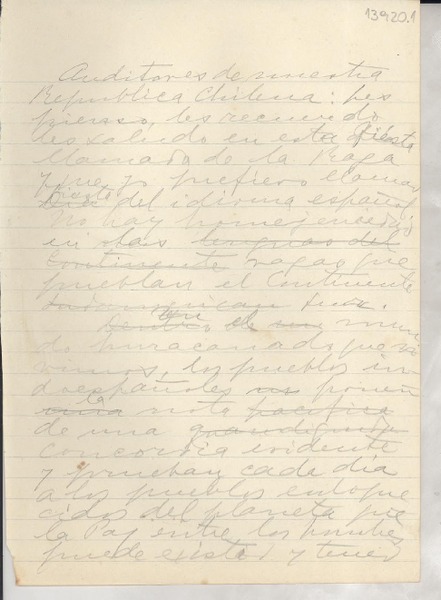 13920.1
Auditores de nuestra
Republica Chilena: les
pienso, les recuerdo
les saludo en esta fiesta
llamada de la Raza
y que yo prefiero llamar
Fiesta
del idioma español
No hay homojeneidad
en las lenguas del
Continente razas que
pueblan el Continente
En
Dentro de un mun
do huracanado que vi
vimos, los pueblos in
doespañoles ponen
la
una nota pacifica
de una
concordia evidente
y prueban cada día
a los pueblos enloque
cidos del planeta que
la Paz entre los hombres
puede existir y tener